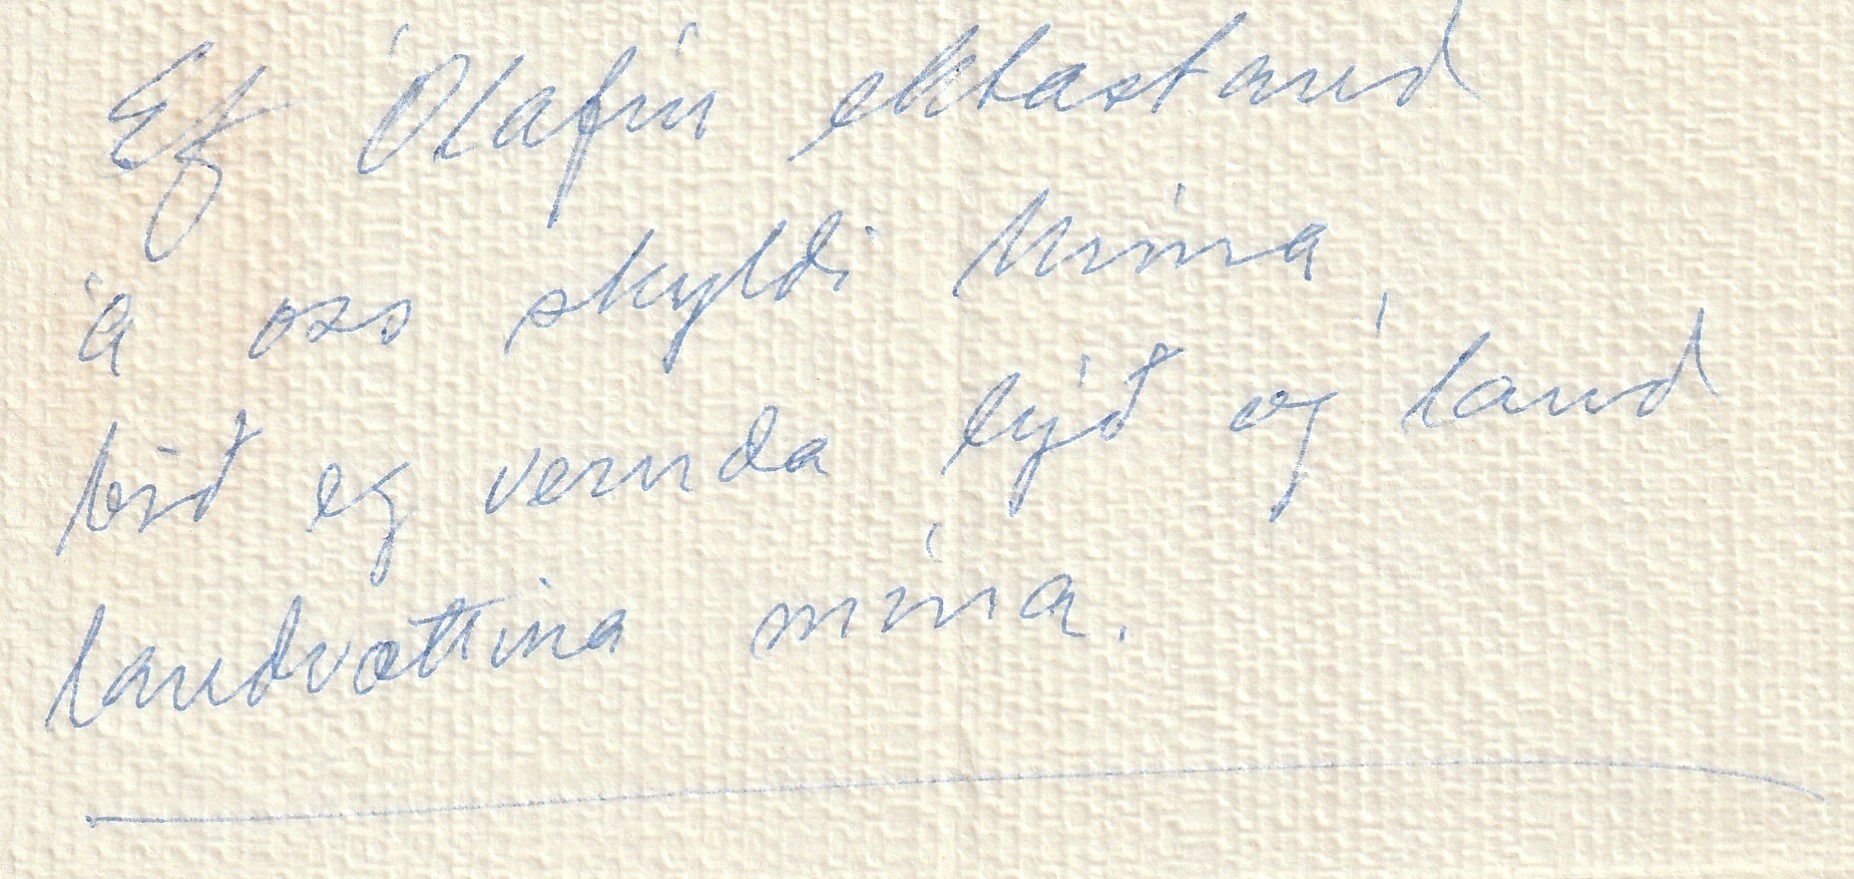 Ef Ólafíu ektastand
á oss skyldi hrína,
bið eg vernda lýð og land
landvættina mína.